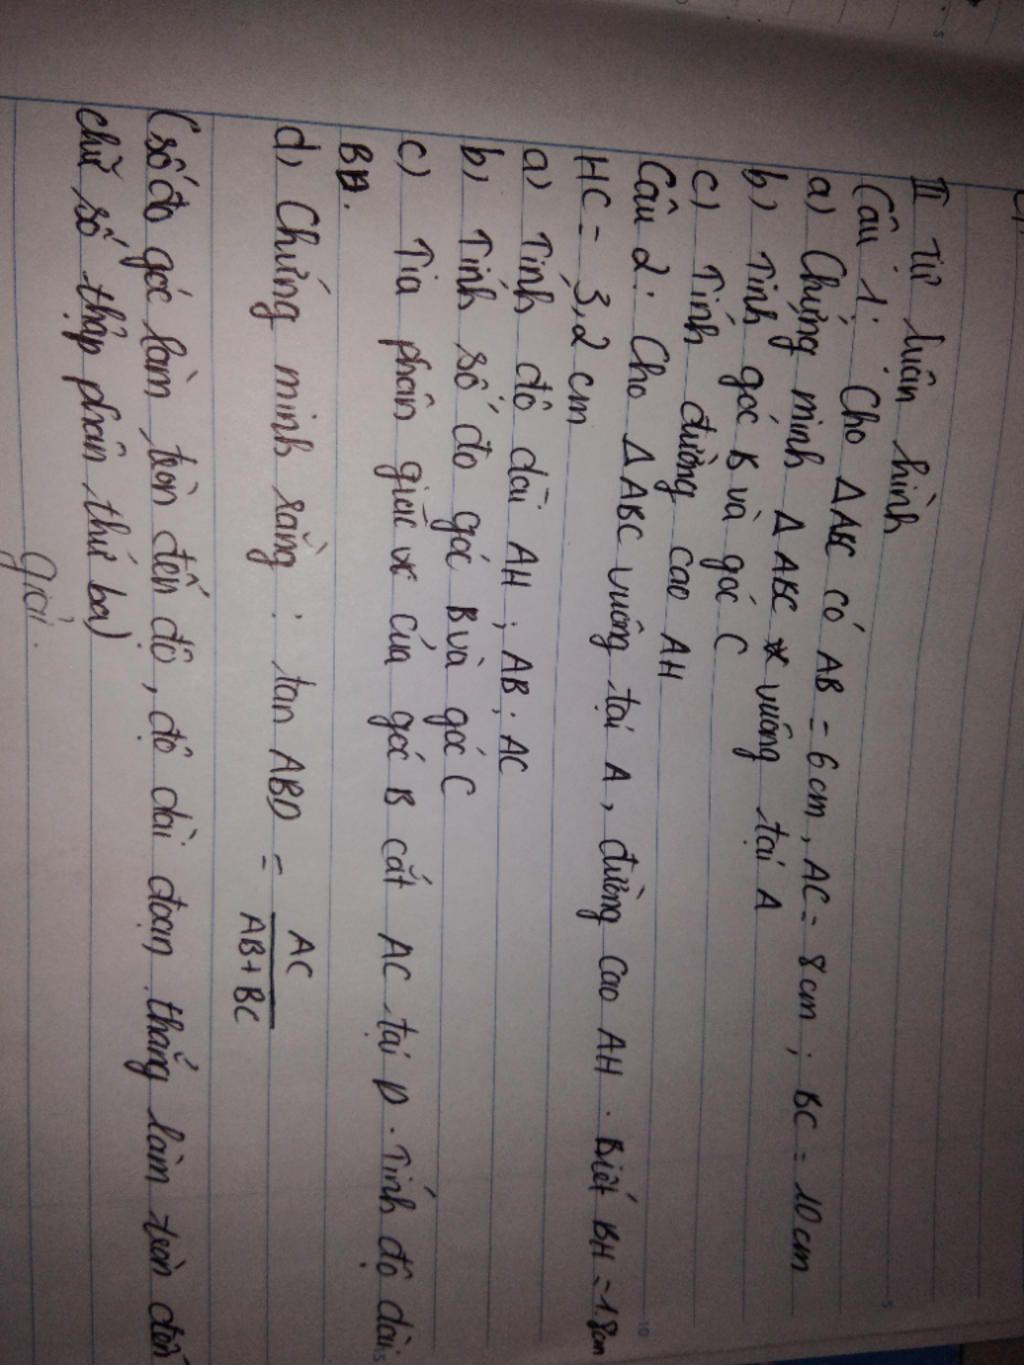 II Tự luận hình
Câu 1: Cho Δ ABC có AB = 6cm, AC = 8cm; BC = 10cm
a) Chứng minh Δ ABC vuông tại A
b) Tính góc B và góc C
c) Tính đường cao AH
Câu 2: Cho Δ ABC vuông tại A, đường cao AH. Biết BH = 1.8cm
HC = 3,2 cm
a) Tính độ dài AH; AB; AC
b) Tính số đo góc B và góc C
c) Tia phân giác của góc B cắt AC tại D. Tính độ dài
BD.
d) Chứng minh rằng: tan ABD = AC / AB + BC
(số đo góc làm tròn đến độ, độ dài đoạn thẳng làm tròn đến
chữ số thập phân thứ ba)
Giải.